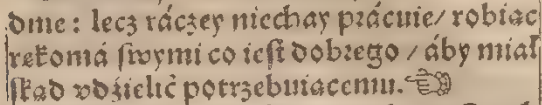 dnie: lecz ráczey niechay prácuie/ robiąc
rękomá swymi co iest dobrego / áby miał
skąd vdźielić potrzebuiącemu.☜